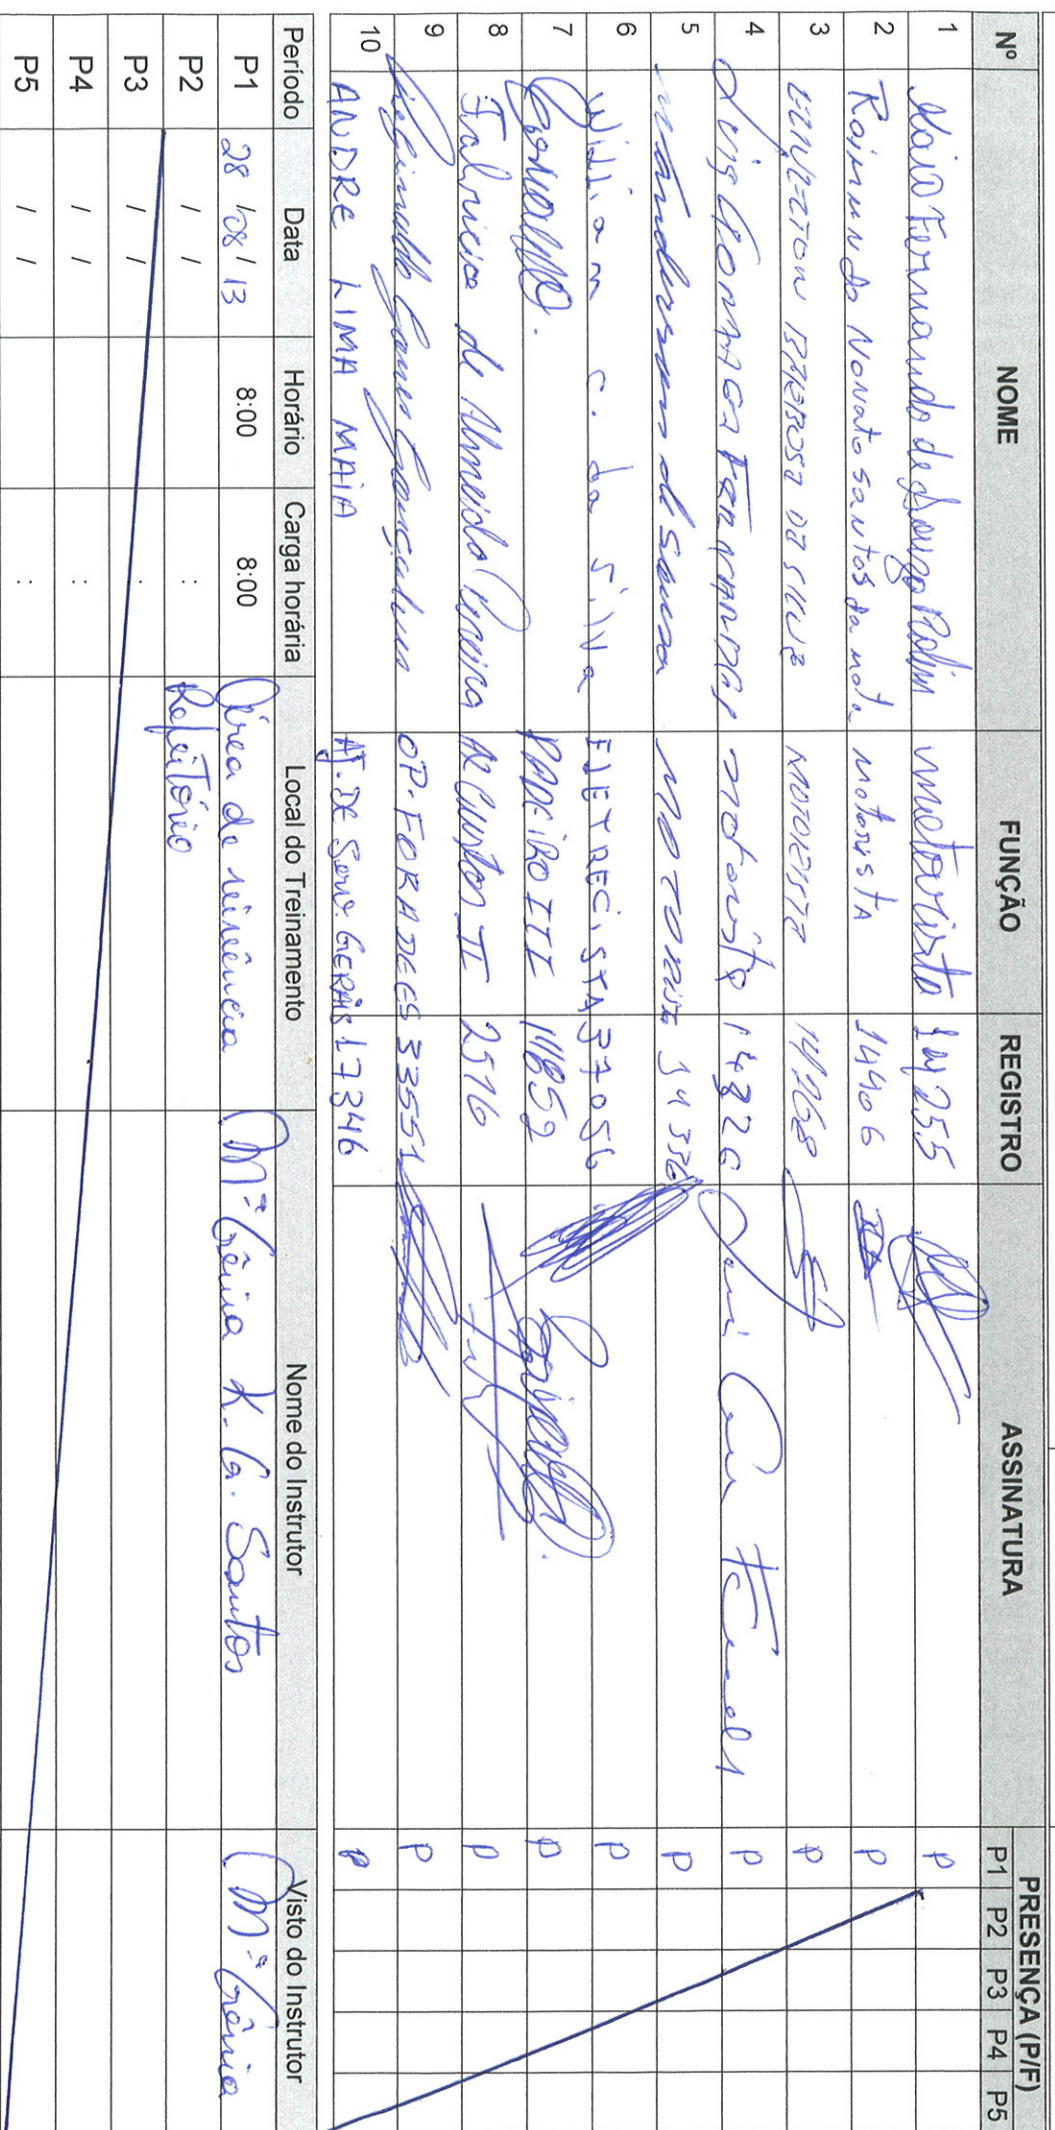 Nº NOME FUNÇÃO REGISTRO ASSINATURA PRESENÇA (P/F)
P1 P2 P3 P4 P5
1 Fernando de Souza motorista P
2 Raimundo Nonato santos da mata motorista 14406 P
3 BARBOSA DA SILVA MOTORISTA P
4 Luis GONZAGA FERNANDES motorista 14326 P
5 Wanderson de Souza MOTORISTA 14336 P
6 William C. da Silva ELETRECISTA 37056 P
7 PADEIRO III P
8 Fabricia de Almeida Pereira II 2516 P
9 Reginaldo Gomes Gonçalves OP. 33551 P
10 ANDRE LIMA MAIA AJ. DE Serv. GERAIS 17346 P
Período Data Horário Carga horária Local do Treinamento Nome do Instrutor Visto do Instrutor
P1 28 / 08 / 13 8:00 8:00 Área de vivência Mª Gênia K. G. Santos Mª Gênia
P2 / / : Refeitório
P3 / / :
P4 / / :
P5 / / :